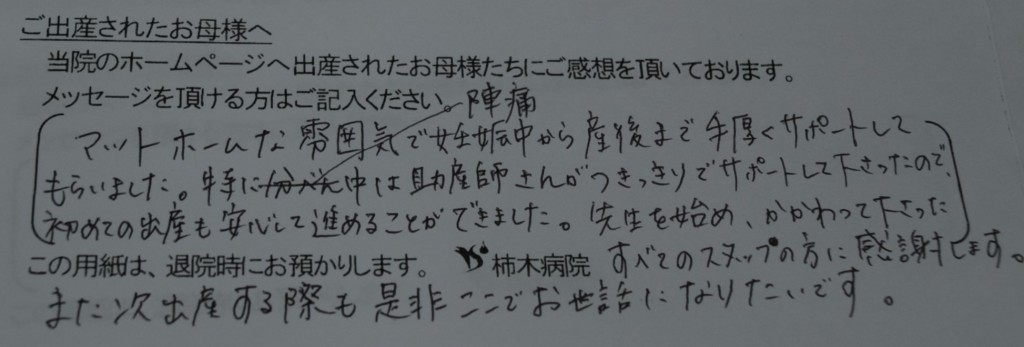 ご出産されたお母様へ
当院のホームページへ出産されたお母様たちにご感想を頂いております。
メッセージを頂ける方はご記入ください。
陣痛
マットホームな雰囲気で妊娠中から産後まで手厚くサポートして
もらいました。特に分べん中は助産師さんがつきっきりでサポートして下さったので、
初めての出産も安心して進めることができました。先生を始め、かかわって下さった
すべてのスタッフの方に感謝します。
この用紙は、退院時にお預かりします。 柿木病院
また次出産する際も是非ここでお世話になりたいです。